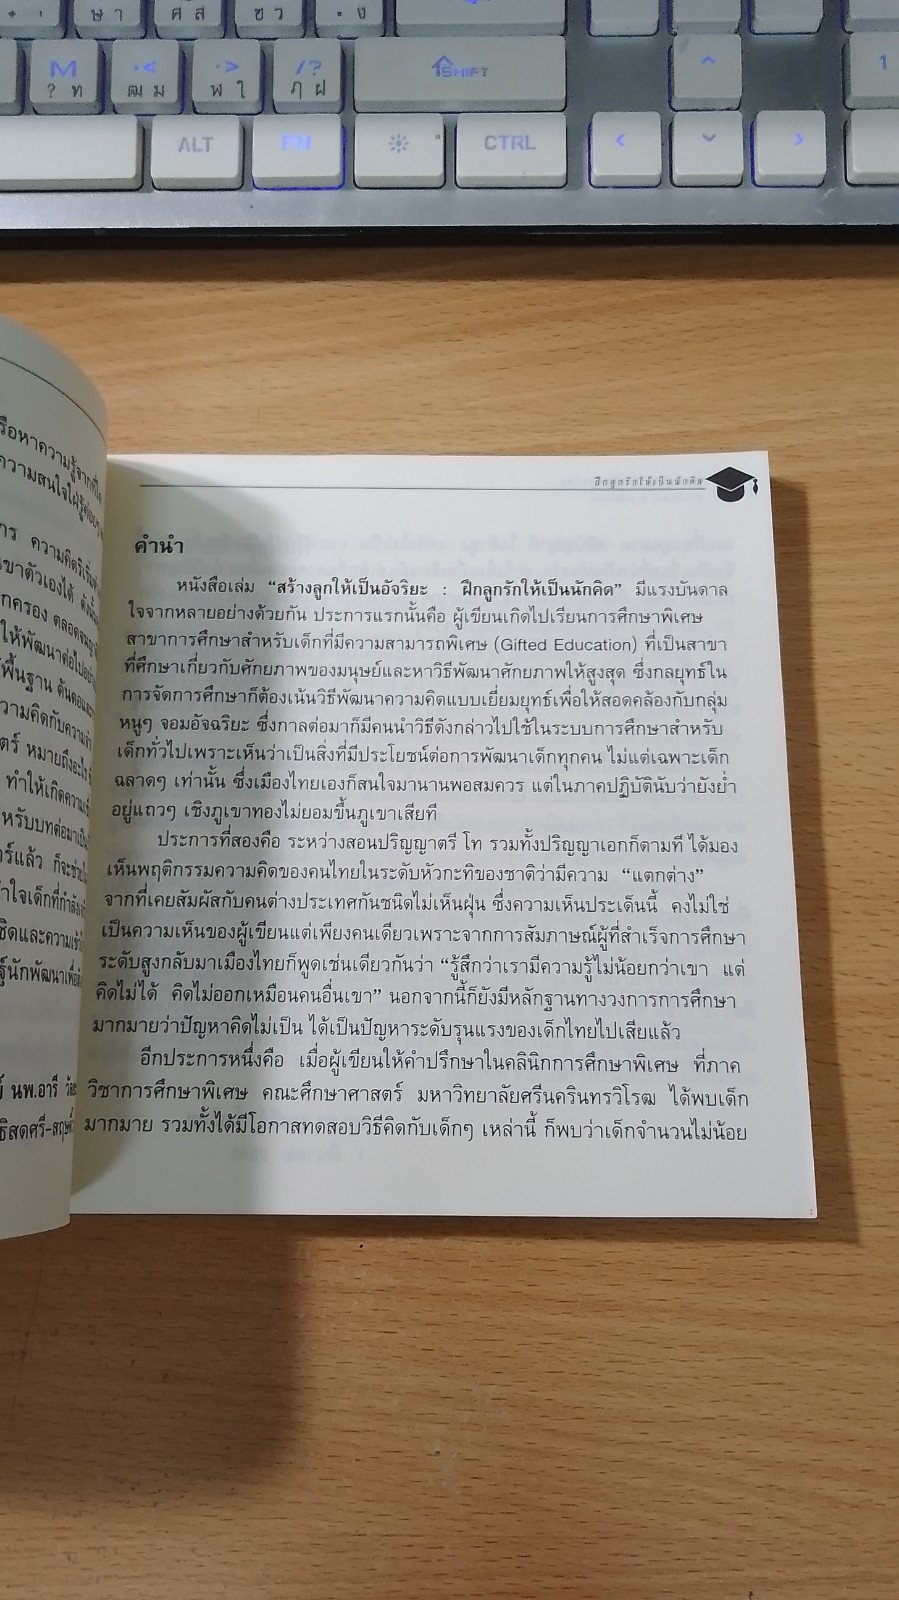 M
? ท
ฒ ม
ฬ ใ
/?
ฦ ฝ
SHIFT
ALT
FN
CTRL
1
ษ า
ศ ส
ซ ว
. ง
รือหาความรู้จากที่ใด
ความสนใจใฝ่รู้
ความคิดริเริ่ม
ขาตัวเองได้ ดังนั้น
กครอง ตลอดจน
ให้พัฒนาต่อไป
พื้นฐาน ค้นคอและ
วามคิดกับความ
ตร์ หมายถึงอะไร
ทำให้เกิดความ
หรับบทต่อมาเป็น
ร์แล้ว ก็จะช่วย
ใจเด็กที่กำลัง
ชิดและความเข้า
นักพัฒนาเพื่อ
นพ.อารี
ฝึกลูกรักให้เป็นนักคิด
คำนำ
หนังสือเล่ม “สร้างลูกให้เป็นอัจริยะ : ฝึกลูกรักให้เป็นนักคิด” มีแรงบันดาล
ใจจากหลายอย่างด้วยกัน ประการแรกนั้นคือ ผู้เขียนเกิดไปเรียนการศึกษาพิเศษ
สาขาการศึกษาสำหรับเด็กที่มีความสามารถพิเศษ (Gifted Education) ที่เป็นสาขา
ที่ศึกษาเกี่ยวกับศักยภาพของมนุษย์และหาวิธีพัฒนาศักยภาพให้สูงสุด ซึ่งกลยุทธ์ใน
การจัดการศึกษาก็ต้องเน้นวิธีพัฒนาความคิดแบบเยี่ยมยุทธ์เพื่อให้สอดคล้องกับกลุ่ม
หนูๆ จอมอัจฉริยะ ซึ่งกาลต่อมาก็มีคนนำวิธีดังกล่าวไปใช้ในระบบการศึกษาสำหรับ
เด็กทั่วไปเพราะเห็นว่าเป็นสิ่งที่มีประโยชน์ต่อการพัฒนาเด็กทุกคน ไม่แต่เฉพาะเด็ก
ฉลาดๆ เท่านั้น ซึ่งเมืองไทยเองก็สนใจมานานพอสมควร แต่ในภาคปฏิบัตินับว่ายังย่ำ
อยู่แถวๆ เชิงภูเขาทองไม่ยอมขึ้นภูเขาเสียที
ประการที่สองคือ ระหว่างสอนปริญญาตรี โท รวมทั้งปริญญาเอกก็ตามที ได้มอง
เห็นพฤติกรรมความคิดของคนไทยในระดับหัวกะทิของชาติว่ามีความ “แตกต่าง”
จากที่เคยสัมผัสกับคนต่างประเทศกันชนิดไม่เห็นฝุ่น ซึ่งความเห็นประเด็นนี้ คงไม่ใช่
เป็นความเห็นของผู้เขียนแต่เพียงคนเดียวเพราะจากการสัมภาษณ์ผู้ที่สำเร็จการศึกษา
ระดับสูงกลับมาเมืองไทยก็พูดเช่นเดียวกันว่า “รู้สึกว่าเรามีความรู้ไม่น้อยกว่าเขา แต่
คิดไม่ได้ คิดไม่ออกเหมือนคนอื่นเขา” นอกจากนี้ก็ยังมีหลักฐานทางวงการการศึกษา
มากมายว่าปัญหาคิดไม่เป็น ได้เป็นปัญหาระดับรุนแรงของเด็กไทยไปเสียแล้ว
อีกประการหนึ่งคือ เมื่อผู้เขียนให้คำปรึกษาในคลินิกการศึกษาพิเศษ ที่ภาค
วิชาการศึกษาพิเศษ คณะศึกษาศาสตร์ มหาวิทยาลัยศรีนครินทรวิโรฒ ได้พบเด็ก
มากมาย รวมทั้งได้มีโอกาสทดสอบวิธีคิดกับเด็กๆ เหล่านี้ ก็พบว่าเด็กจำนวนไม่น้อย